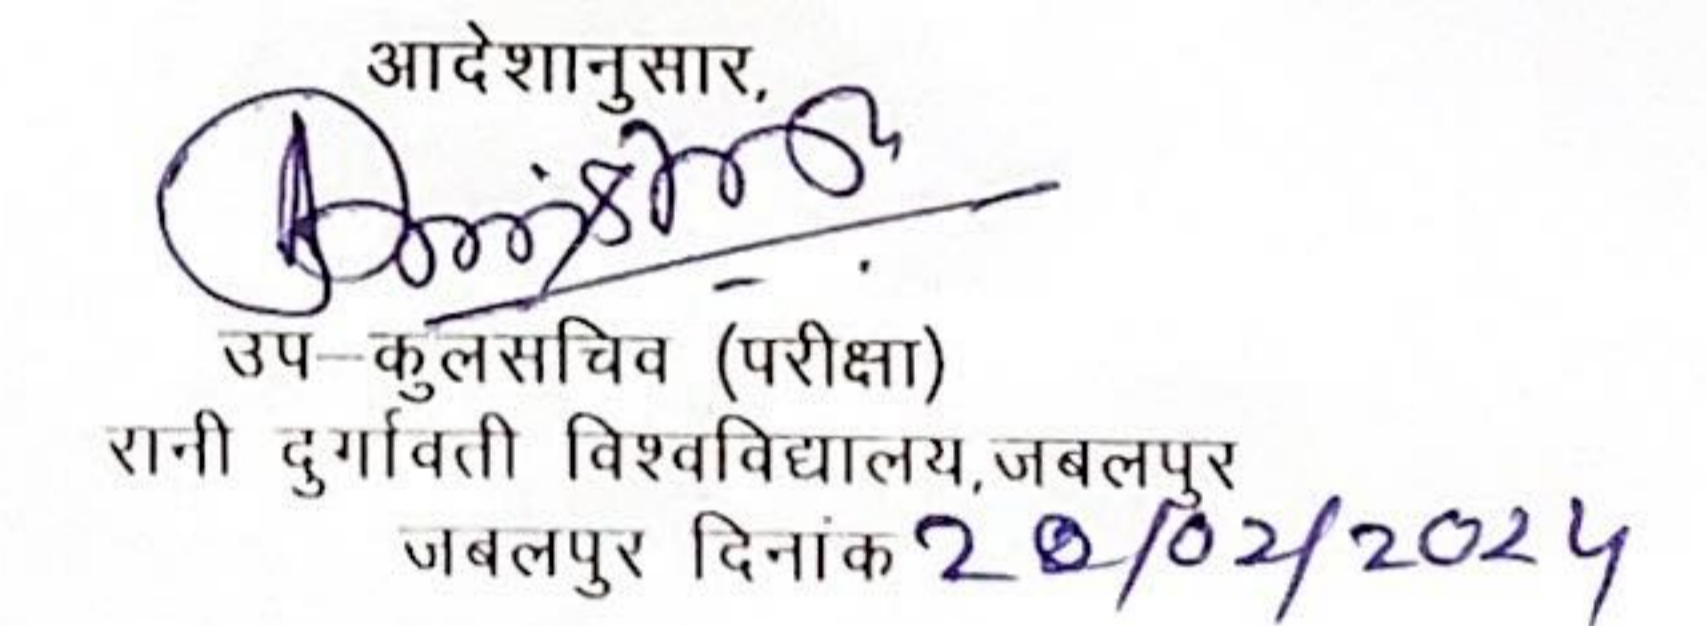 आदेशानुसार,
उप-कुलसचिव (परीक्षा)
रानी दुर्गावती विश्वविद्यालय,जबलपुर
जबलपुर दिनांक /02/2024